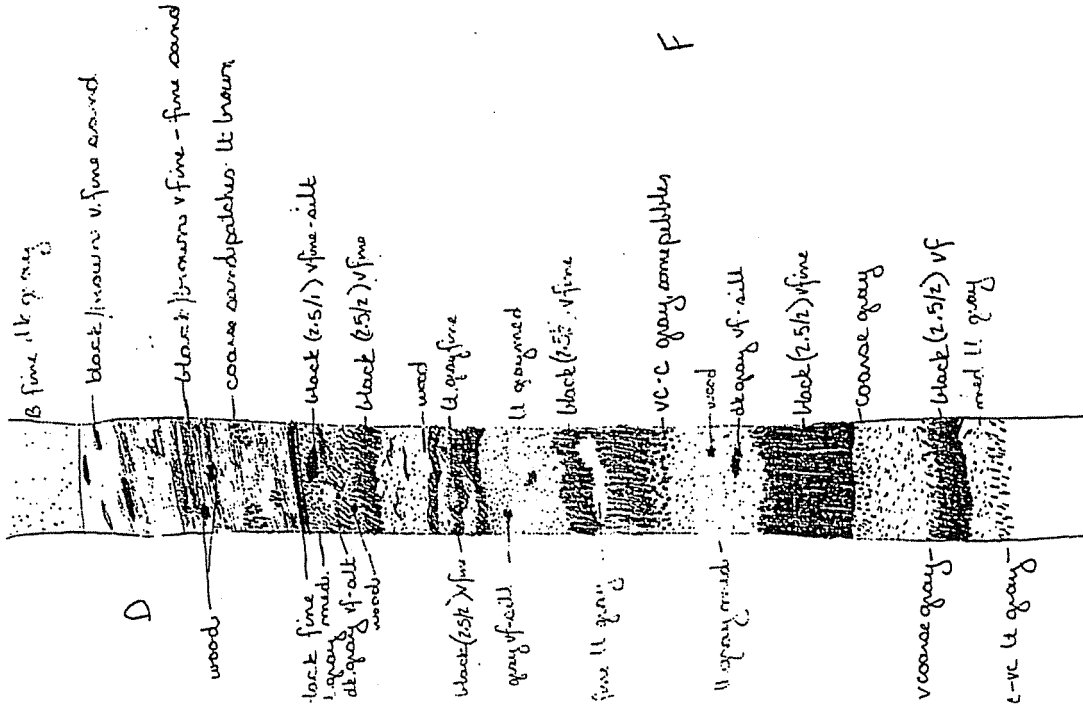 B fine lt gray
black/brown v. fine sand
black/brown vfine-fine sand
coarse sand patches lt brown
black (2.5/1) vfine-silt
black (2.5/2) vfine
wood
lt gray fine
lt gray med
black (2.5/2) vfine
vc-c gray, some pebbles
wood
dk gray vf-silt
black (2.5/2) vfine
coarse gray
black (2.5/2) vf
med lt gray
F
D
wood
black fine
l. gray med.
dk. gray vf-slt
wood
black (2.5/2) vfine
gray vf-silt
fine lt gray
lt gray med
v coarse gray
c-vc lt gray